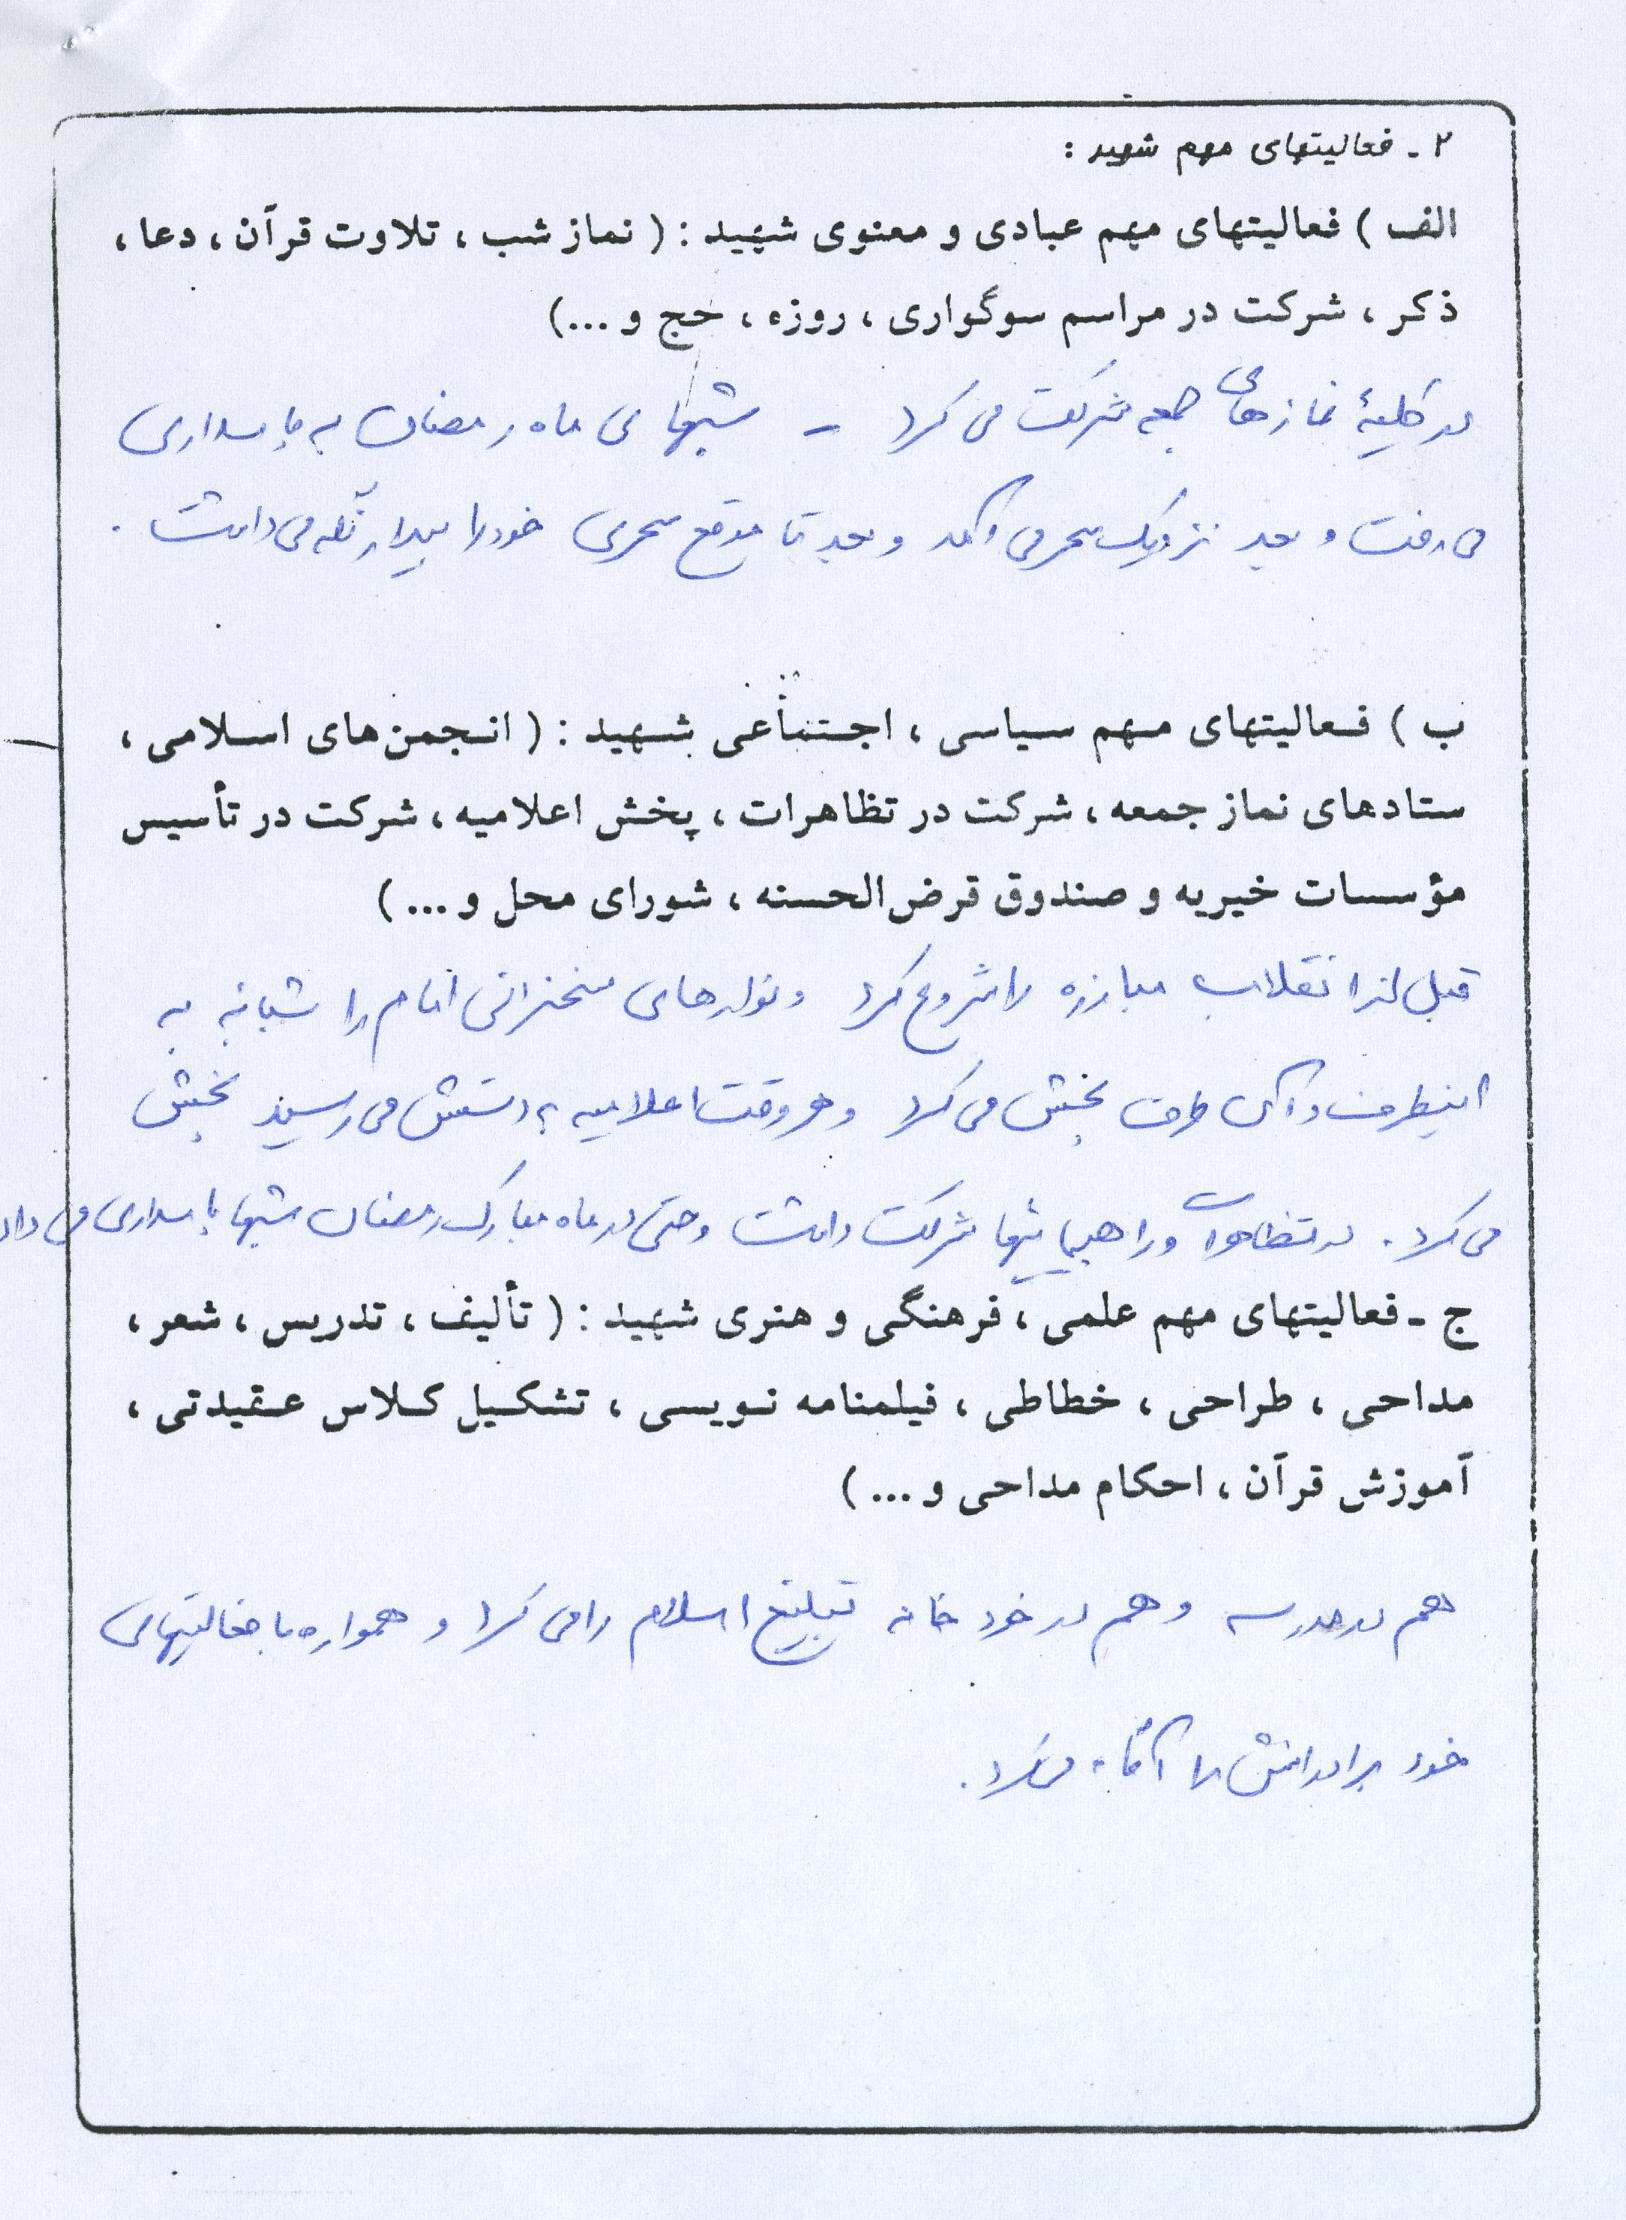 ۲ ـ فعالیتهای مهم شهید :
الف ) فعالیتهای مهم عبادی و معنوی شهید : ( نماز شب ، تلاوت قرآن ، دعا ،
ذکر ، شرکت در مراسم سوگواری ، روزه ، حج و ...)
در کلیهٔ نمازهای جمعه شرکت می کرد - شبهای ماه رمضان به پاسداری
می رفت و بعد نزدیک سحر می آمد و بعد تا موقع سحری خود را بیدار نگه می داشت .
ب ) فعالیتهای مهم سیاسی ، اجتماعی شهید : ( انجمن‌های اسلامی ،
ستادهای نماز جمعه ، شرکت در تظاهرات ، پخش اعلامیه ، شرکت در تأسیس
مؤسسات خیریه و صندوق قرض‌الحسنه ، شورای محل و ... )
قبل از انقلاب مبارزه را شروع کرد و نوارهای سخنرانی امام را شبانه به
اینطرف و آن طرف پخش می کرد و هر وقت اعلامیه به دستش می رسید پخش
می کرد . در تظاهرات و راهپیمائیها شرکت داشت و حتی در ماه مبارک رمضان شبها پاسداری می داد
ج ـ فعالیتهای مهم علمی ، فرهنگی و هنری شهید : ( تألیف ، تدریس ، شعر ،
مداحی ، طراحی ، خطاطی ، فیلمنامه نویسی ، تشکیل کلاس عقیدتی ،
آموزش قرآن ، احکام مداحی و ... )
هم در مدرسه و هم در خود خانه تبلیغ اسلام را می کرد و همواره با فعالیتهای
خود برادرانش را آگاه میکرد .